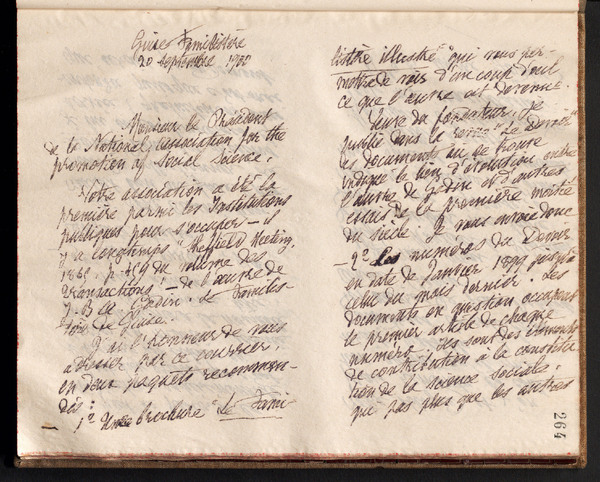 Guise Familistère
20 septembre 1900
Monsieur le Président
de la National association for the
promotion of Social Science.
Notre association a été la
première parmi les Institutions
publiques pour s'occuper – il
y a longtemps "Sheffield Meeting,
1865, p. 459 du volume des
transactions" – de l'œuvre de
J. B. A. Godin. Le Familis-
tère de Guise.
J'ai l'honneur de vous
adresser par ce courrier,
en deux paquets recomman-
dés :
1° Une brochure "Le Fami-
listère illustré" qui vous per-
mettra de voir d'un coup d'œil
ce que l'œuvre est devenue.
du fondateur, je
publie dans la revue "Le Devoir"
les documents où se trouve
indiqué le lien d'évolution entre
l'œuvre de Godin et d'autres
essais de la première moitié
du siècle. Je vous envoie donc
– 2° Les numéros du Devoir
en date de Janvier 1899 jusqu'à
celui du mois dernier. Les
documents en question occupent
le premier article de chaque
numéro. Ils sont des éléments
de contribution à la constitu-
tion de la science sociale,
que pas plus que les autres
264